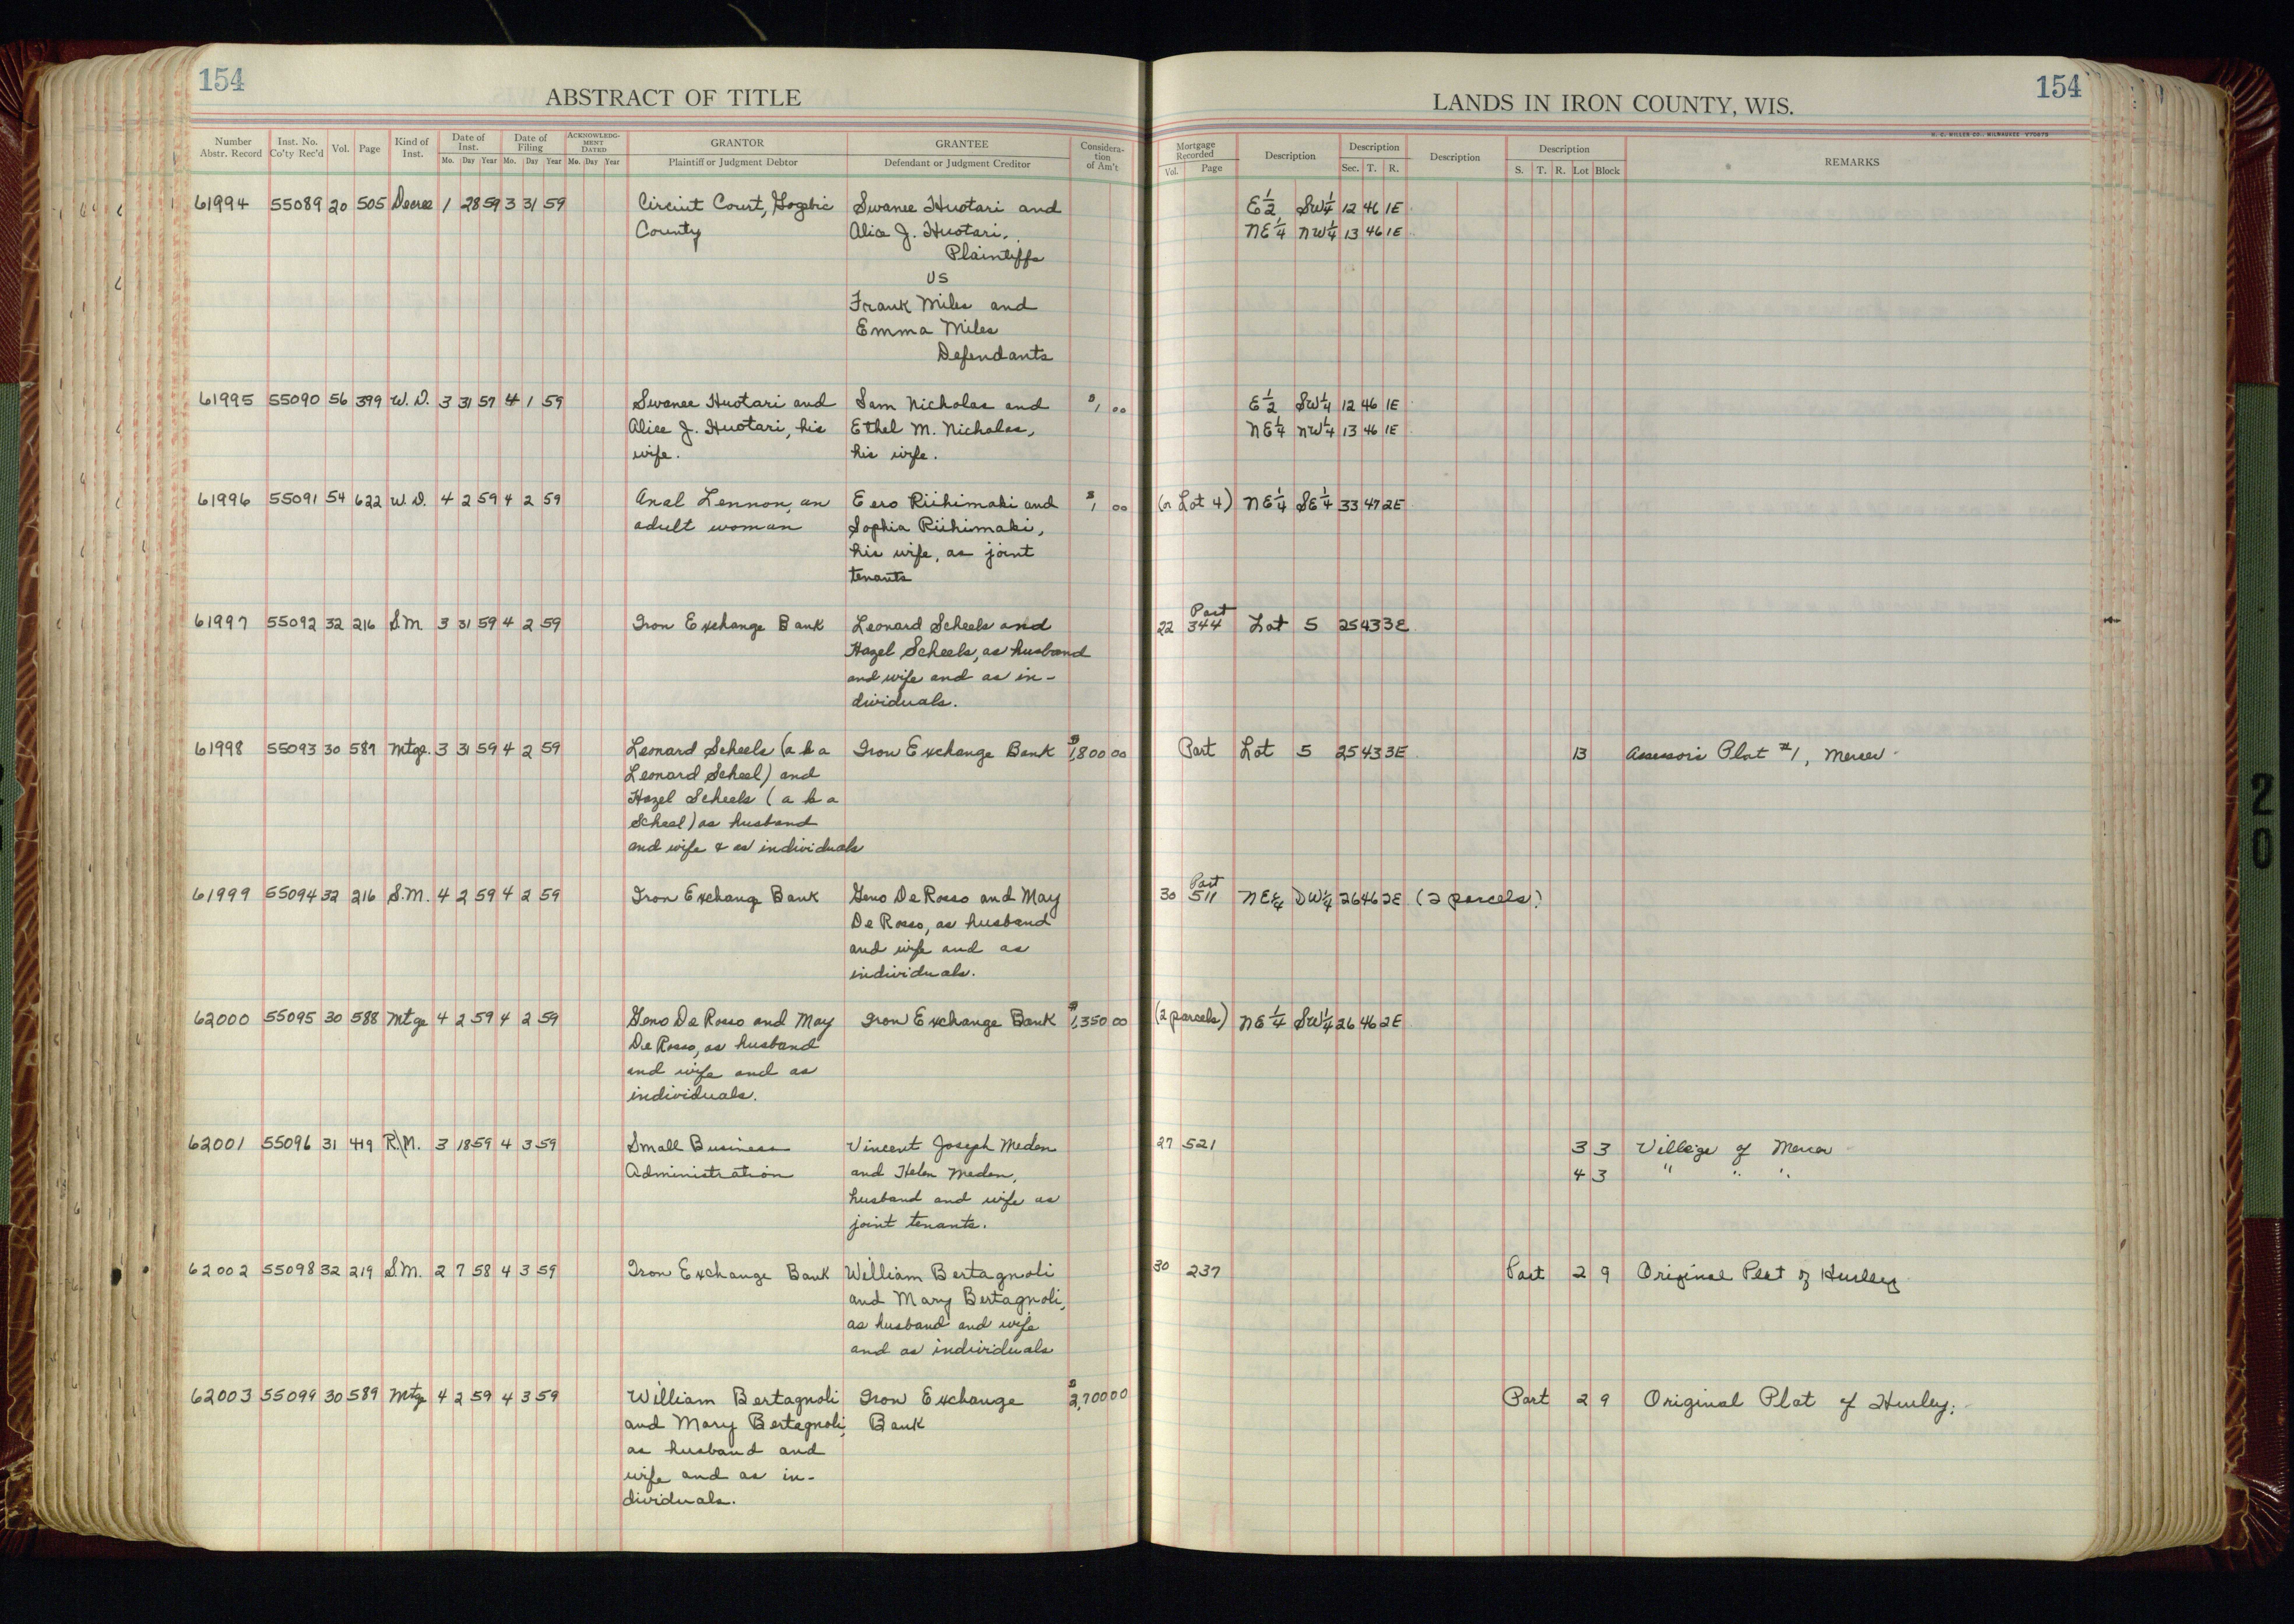 154
ABSTRACT OF TITLE
Number Abstr. Record | Inst. No. Co'ty Rec'd | Vol. | Page | Kind of Inst. | Date of Inst. Mo. Day Year | Date of Filing Mo. Day Year | ACKNOWLEDGMENT DATED Mo. Day Year | GRANTOR Plaintiff or Judgment Debtor | GRANTEE Defendant or Judgment Creditor | Consideration of Am't
154
LANDS IN IRON COUNTY, WIS.
H. C. MILLER CO., MILWAUKEE V70673
Mortgage Recorded Vol. Page | Description | Description Sec. T. R. | Description | Description S. T. R. Lot Block | REMARKS
61994 55089 20 505 Decree 1 28 59 3 31 59 Circiut Court, Gogebic Swanee Huotari and E½ SW¼ 12 46 1E
County Alice J. Huotari, NE¼ NW¼ 13 46 1E
Plaintiffs
US
Frank Miles and
Emma Miles
Defendants
61995 55090 56 399 W. D. 3 31 59 4 1 59 Swanee Huotari and Sam Nicholas and $1 00 E½ SW¼ 12 46 1E
Alice J. Huotari, his Ethel M. Nicholas, NE¼ NW¼ 13 46 1E
wife. his wife.
61996 55091 54 622 W. D. 4 2 59 4 2 59 Anal Lennon, an Eero Riihimaki and $1 00 (or Lot 4) NE¼ SE¼ 33 47 2E
adult woman Sophia Riihimaki,
his wife, as joint
tenants
61997 55092 32 216 S.M. 3 31 59 4 2 59 Iron Exchange Bank Leonard Scheels and 22 344 Part Lot 5 25 43 3E
Hazel Scheels, as husband
and wife and as in-
dividuals.
61998 55093 30 587 Mtge. 3 31 59 4 2 59 Leonard Scheels (a k a Iron Exchange Bank $1,800 00 Part Lot 5 25 43 3E 13 Assessors Plat #1, Mercer
Leonard Scheel) and
Hazel Scheels (a k a
Scheel) as husband
and wife & as individuals
61999 55094 32 216 S.M. 4 2 59 4 2 59 Iron Exchang Bank Geno De Rosso and May 30 511 Part NE¼ DW¼ 26 46 2E (2 parcels)
De Rosso, as husband
and wife and as
individuals.
62000 55095 30 588 Mtge 4 2 59 4 2 59 Geno De Rosso and May Iron Exchange Bank $1,350 00 (2 parcels) NE¼ SW¼ 26 46 2E
De Rosso, as husband
and wife and as
individuals.
62001 55096 31 419 R.M. 3 18 59 4 3 59 Small Business Vincent Joseph Medon 27 521 3 3 Village of Mercer
Administration and Helen Medon, 4 3 " " "
husband and wife as
joint tenants.
62002 55098 32 219 S.M. 2 7 58 4 3 59 Iron Exchange Bank William Bertagnoli 30 237 Part 2 9 Original Plat of Hurley
and Mary Bertagnoli,
as husband and wife
and as individuals
62003 55099 30 589 Mtge 4 2 59 4 3 59 William Bertagnoli Iron Exchange $2,700 00 Part 2 9 Original Plat of Hurley.
and Mary Bertagnoli, Bank
as husband and
wife and as in-
dividuals.
20